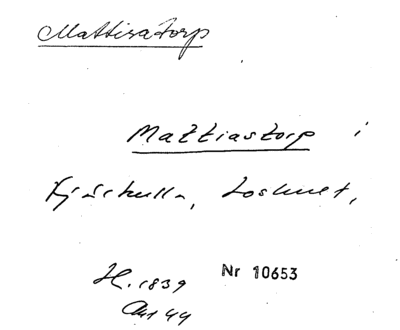 Mattisatorp
Mattiastorp i
Fjärhulla, Loshult,
H. 1839
Nr 10653